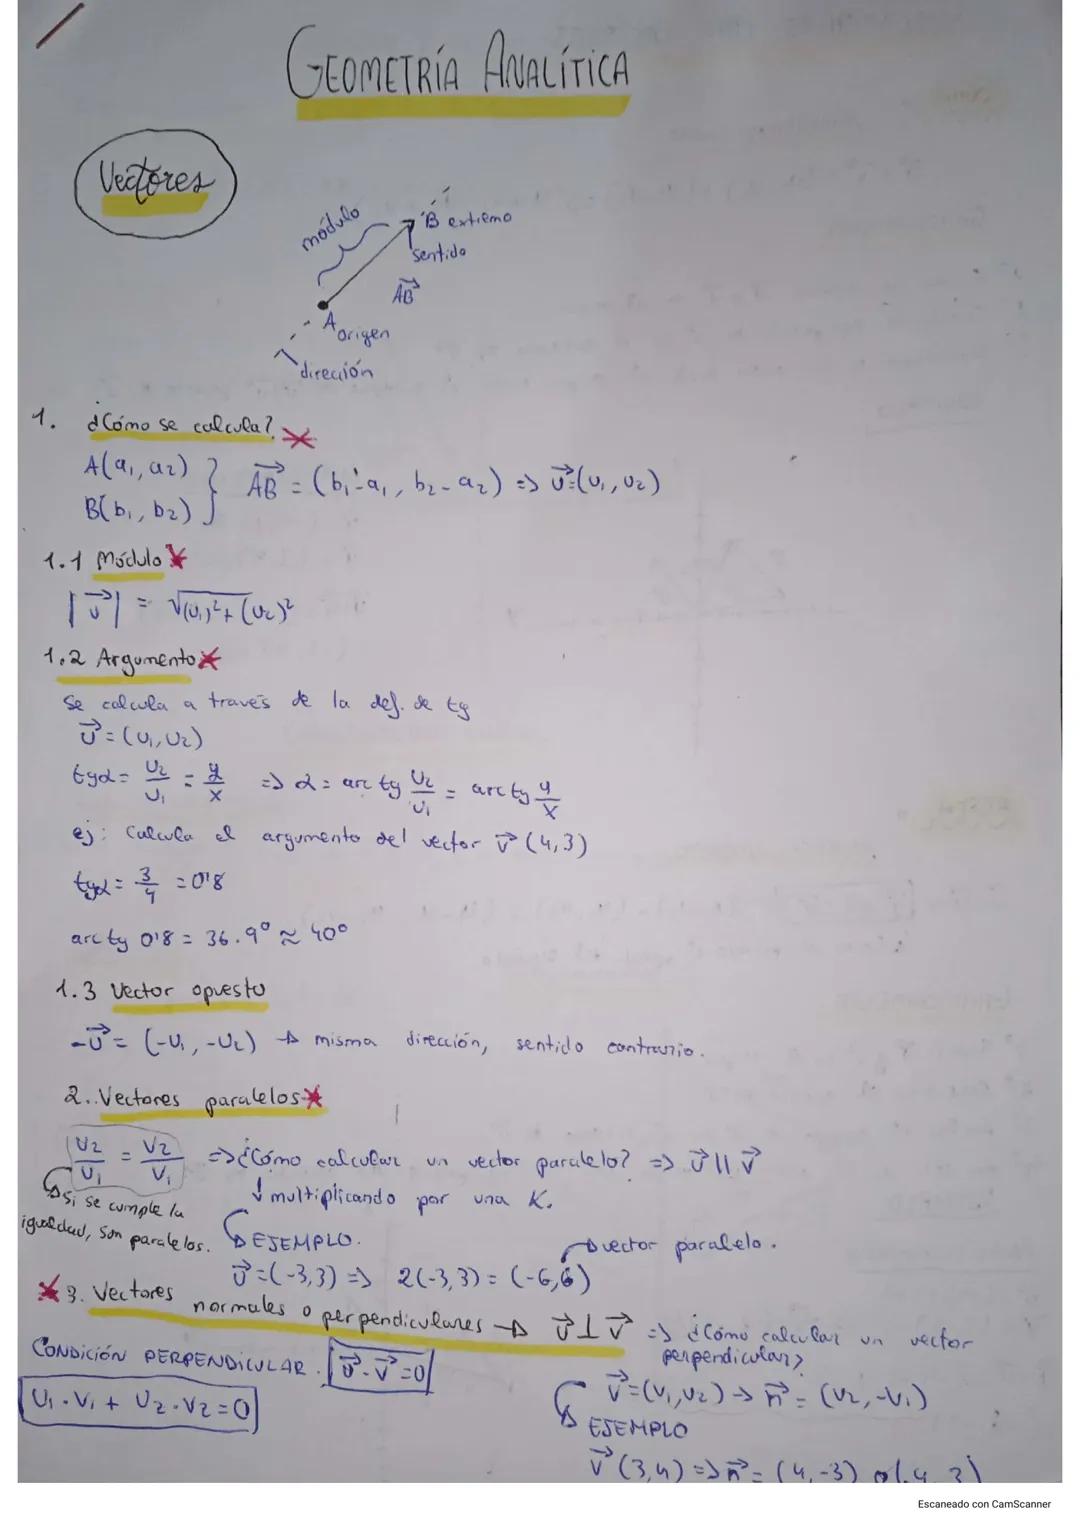 GEOMETRÍA ANALÍTICA
Vectores
módulo
B extremo
sentido
AB
A origen
dirección
1. ¿Cómo se calcula?
A(a₁, a₂)
B(b₁, b₂) } AB = (b₁-a₁, b₂-a₂) => u=(u₁, u₂)
1.1 Módulo
|u| = √(u₁)²+(u₂)²
1.2 Argumento
Se calcula a través de la def. de tg
u = (u₁, u₂)
tgα = u₂/u₁ = y/x => α = arc tg u₂/u₁ = arc tg y/x
ej: Calcula el argumento del vector v (4,3)
tgα = 3/4 = 0'8
arc tg 0'8 = 36.9° ≈ 40°
1.3 Vector opuesto
-u = (-u₁, -u₂) → misma dirección, sentido contrario.
2. Vectores paralelos
u₂/u₁ = v₂/v₁ => ¿Cómo calcular un vector paralelo? => u || v
↓ multiplicando por una K.
Si se cumple la
igualdad, son paralelos.
EJEMPLO.
vector paralelo.
u = (-3,3) => 2(-3,3) = (-6,6)
3. Vectores normales o perpendiculares → u ⊥ v => ¿Cómo calcular un vector
perpendicular?
CONDICIÓN PERPENDICULAR. u · v = 0
v = (v₁, v₂) → n = (v₂, -v₁)
u₁ · v₁ + u₂ · v₂ = 0
EJEMPLO
v (3,4) => n = (4,-3) o (-4,3)
Escaneado con CamScanner